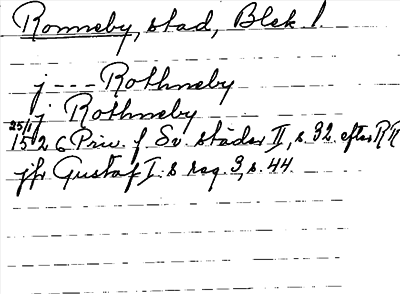 Ronneby, stad, Blek l.
j --- Rothneby
j Rothneby
25/1 1526 Priv. f Sv. städer II, s. 32. efter RR
jfr Gustaf I:s reg. 3, s. 44.